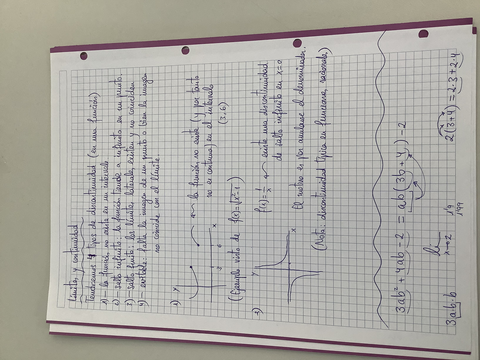 Límites y continuidad
Tendremos 4 tipos de discontinuidad (en una función)
1) - la función no exista en un intervalo
2) - salto infinito: la función tiende a infinito en un punto.
3) - salto finito: los límites laterales existen y no coinciden
4) - evitable: falta la imagen de un punto o bien la imagen
no coincide con el límite
1)
la función no existe (y por tanto
no es continua) en el intervalo
(Ejemplo visto de f(x)=
2)
f(x) = 1/x
existe una discontinuidad
de salto infinito en x=0
El motivo es por anularse el denominador.
(Nota: discontinuidad típica en funciones racionales)
3ab² + 4ab - 2 = ab (3b + 4) - 2
2(3+4) = 2·3+2·4
lim
x→2
3ab·b